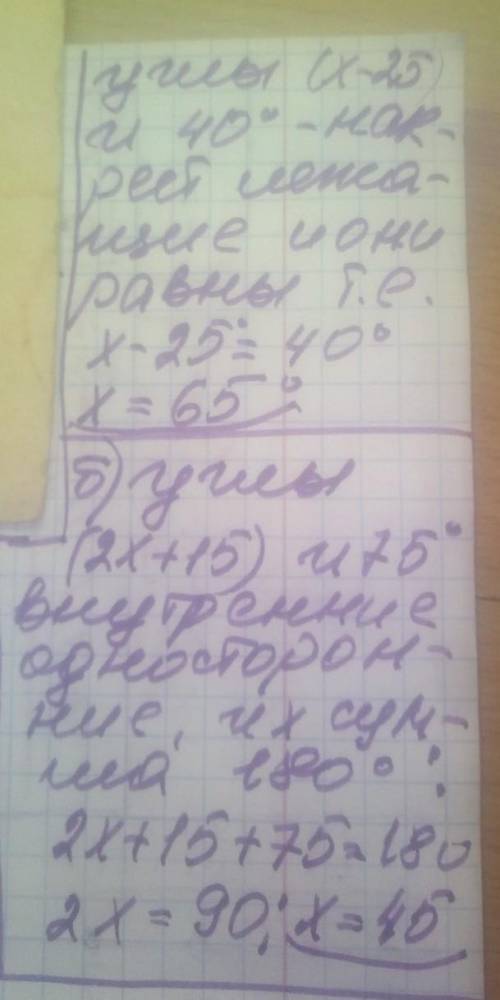 углы (x-25)
и 40° -нак-
рест лежа-
щие и они
равны т.е.
x-25°= 40°
x = 65°
б) углы
(2x+15) и 75°
внутренние
односторон-
ние, их сум-
ма 180°:
2x+15+75=180
2x = 90; x=45